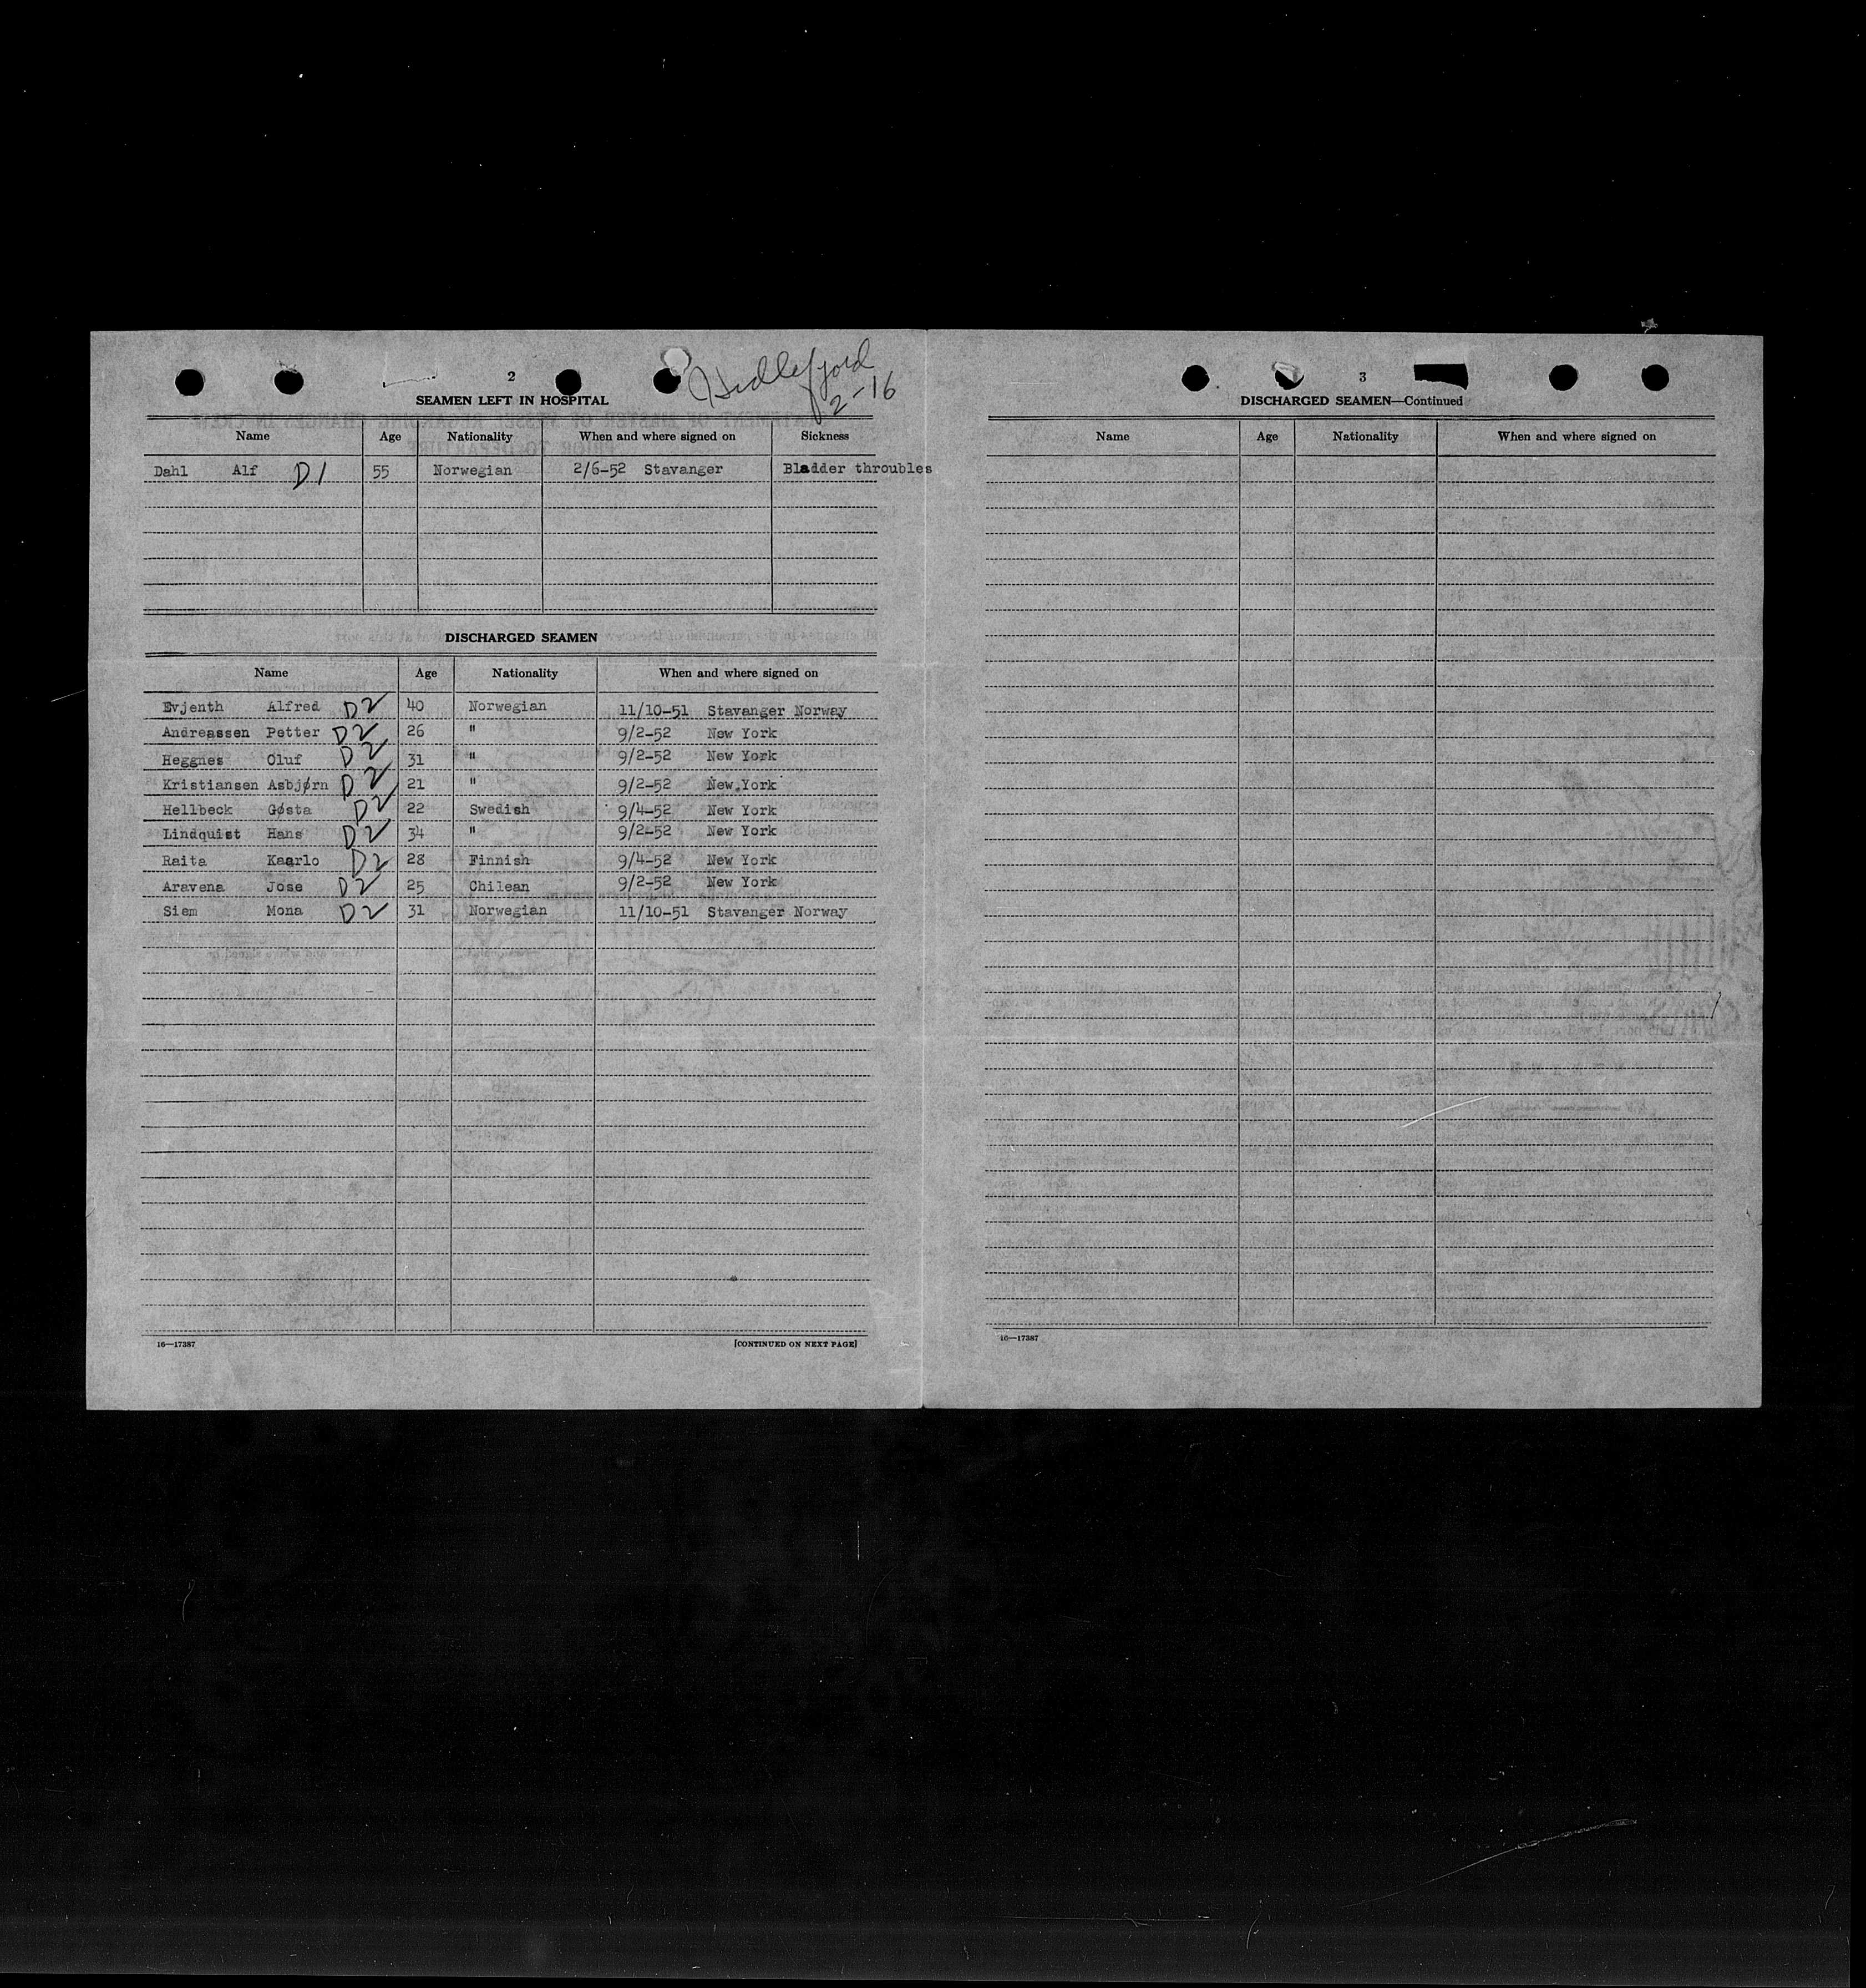 2
Hidlefjord
2-16
SEAMEN LEFT IN HOSPITAL
Name Age Nationality When and where signed on Sickness
Dahl Alf D1 55 Norwegian 2/6-52 Stavanger Bladder throubles
DISCHARGED SEAMEN
Name Age Nationality When and where signed on
Evjenth Alfred D2 40 Norwegian 11/10-51 Stavanger Norway
Andreassen Petter D2 26 " 9/2-52 New York
Heggnes Oluf D2 31 " 9/2-52 New York
Kristiansen Asbjørn D2 21 " 9/2-52 New York
Hellbeck Gøsta D2 22 Swedish 9/4-52 New York
Lindquist Hans D2 34 " 9/2-52 New York
Raita Kaarlo D2 28 Finnish 9/4-52 New York
Aravena Jose D2 25 Chilean 9/2-52 New York
Siem Mona D2 31 Norwegian 11/10-51 Stavanger Norway
16—17387 [CONTINUED ON NEXT PAGE]
3
DISCHARGED SEAMEN—Continued
Name Age Nationality When and where signed on
16—17387